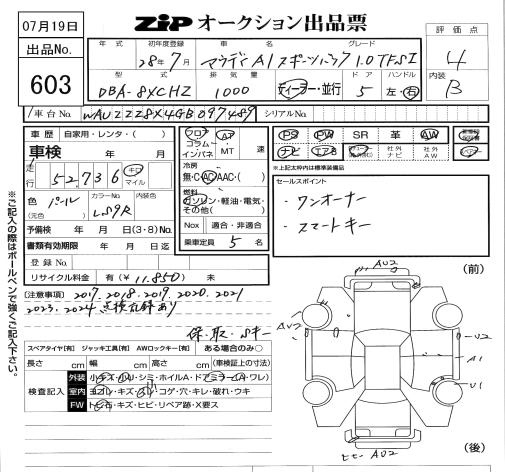 07月19日
出品No.
603
ZIP オークション出品票
評価点
4
内装
B
年式 初年度登録 車名 グレード
28年7月 アウディA1スポーツバック 1.0TFSI
型式 排気量 ドア ハンドル
DBA-8XCHZ 1000 ディーラー・並行 5 左・右
車台No. WAUZZZ8X4GB097489 シリアルNo.
車歴 自家用・レンタ・( )
車検 年 月
走行 52,736 キロ マイル
色 (元色) パール カラーNo. LS9R 内装色
予備検 年 月 日(3・8)No.
書類有効期限 年 月 日迄
登録No.
リサイクル料金 有(¥ 11,850) 未
フロア コラム インパネ AT MT 速
冷房
無・C AC AAC・( )
燃料
ガソリン・軽油・電気・その他( )
Nox 適合・非適合
乗車定員 5 名
PS PW SR 革 AW
ナビ エアB 社外ナビ 社外AW
*上記太枠内は標準装備品
セールスポイント
・ワンオーナー
・スマートキー
※ご記入の際はボールペンで強くご記入下さい。
[注意事項] 2017.2018.2019.2020.2021
2023.2024 点検記録あり
保・取・Sキー
スペアタイヤ[有] ジャッキ工具[有] AWロックキー[有] ある場合のみ○
長さ cm 幅 cm 高さ cm (車検証上の寸法)
検査記入
外装 小キズ・凹・シミ・ホイルA・ドアミラー(A・ワレ)
室内 ヨゴレ・キズ・スレ・コゲ・穴・キレ・破れ・ウキ
FW トビ石・キズ・ヒビ・リペア跡・X要ス
(前)
AU2
AU2
U2
A1
U1
ヒビ AU2
(後)